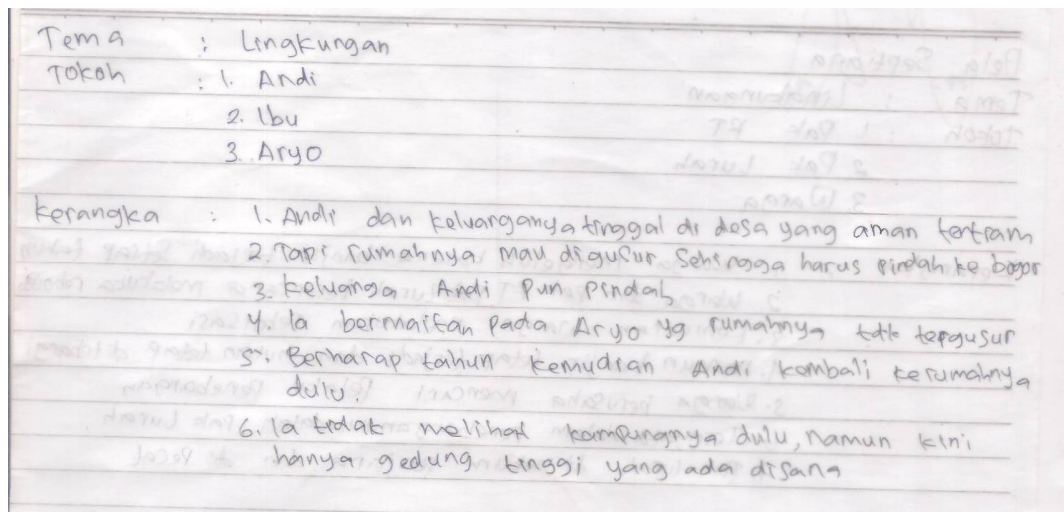 Tema : Lingkungan
Tokoh : 1. Andi
2. Ibu
3. Aryo
Kerangka : 1. Andi dan keluarganya tinggal di desa yang aman tentram
2. Tapi rumahnya mau digusur sehingga harus pindah ke bogor
3. Keluarga Andi pun pindah
4. Ia bermaitan pada Aryo yg rumahnya tdk tergusur
5. Berharap tahun kemudian Andi kembali kerumahnya
dulu.
6. Ia tidak melihat kampungnya dulu, namun kini
hanya gedung tinggi yang ada disana